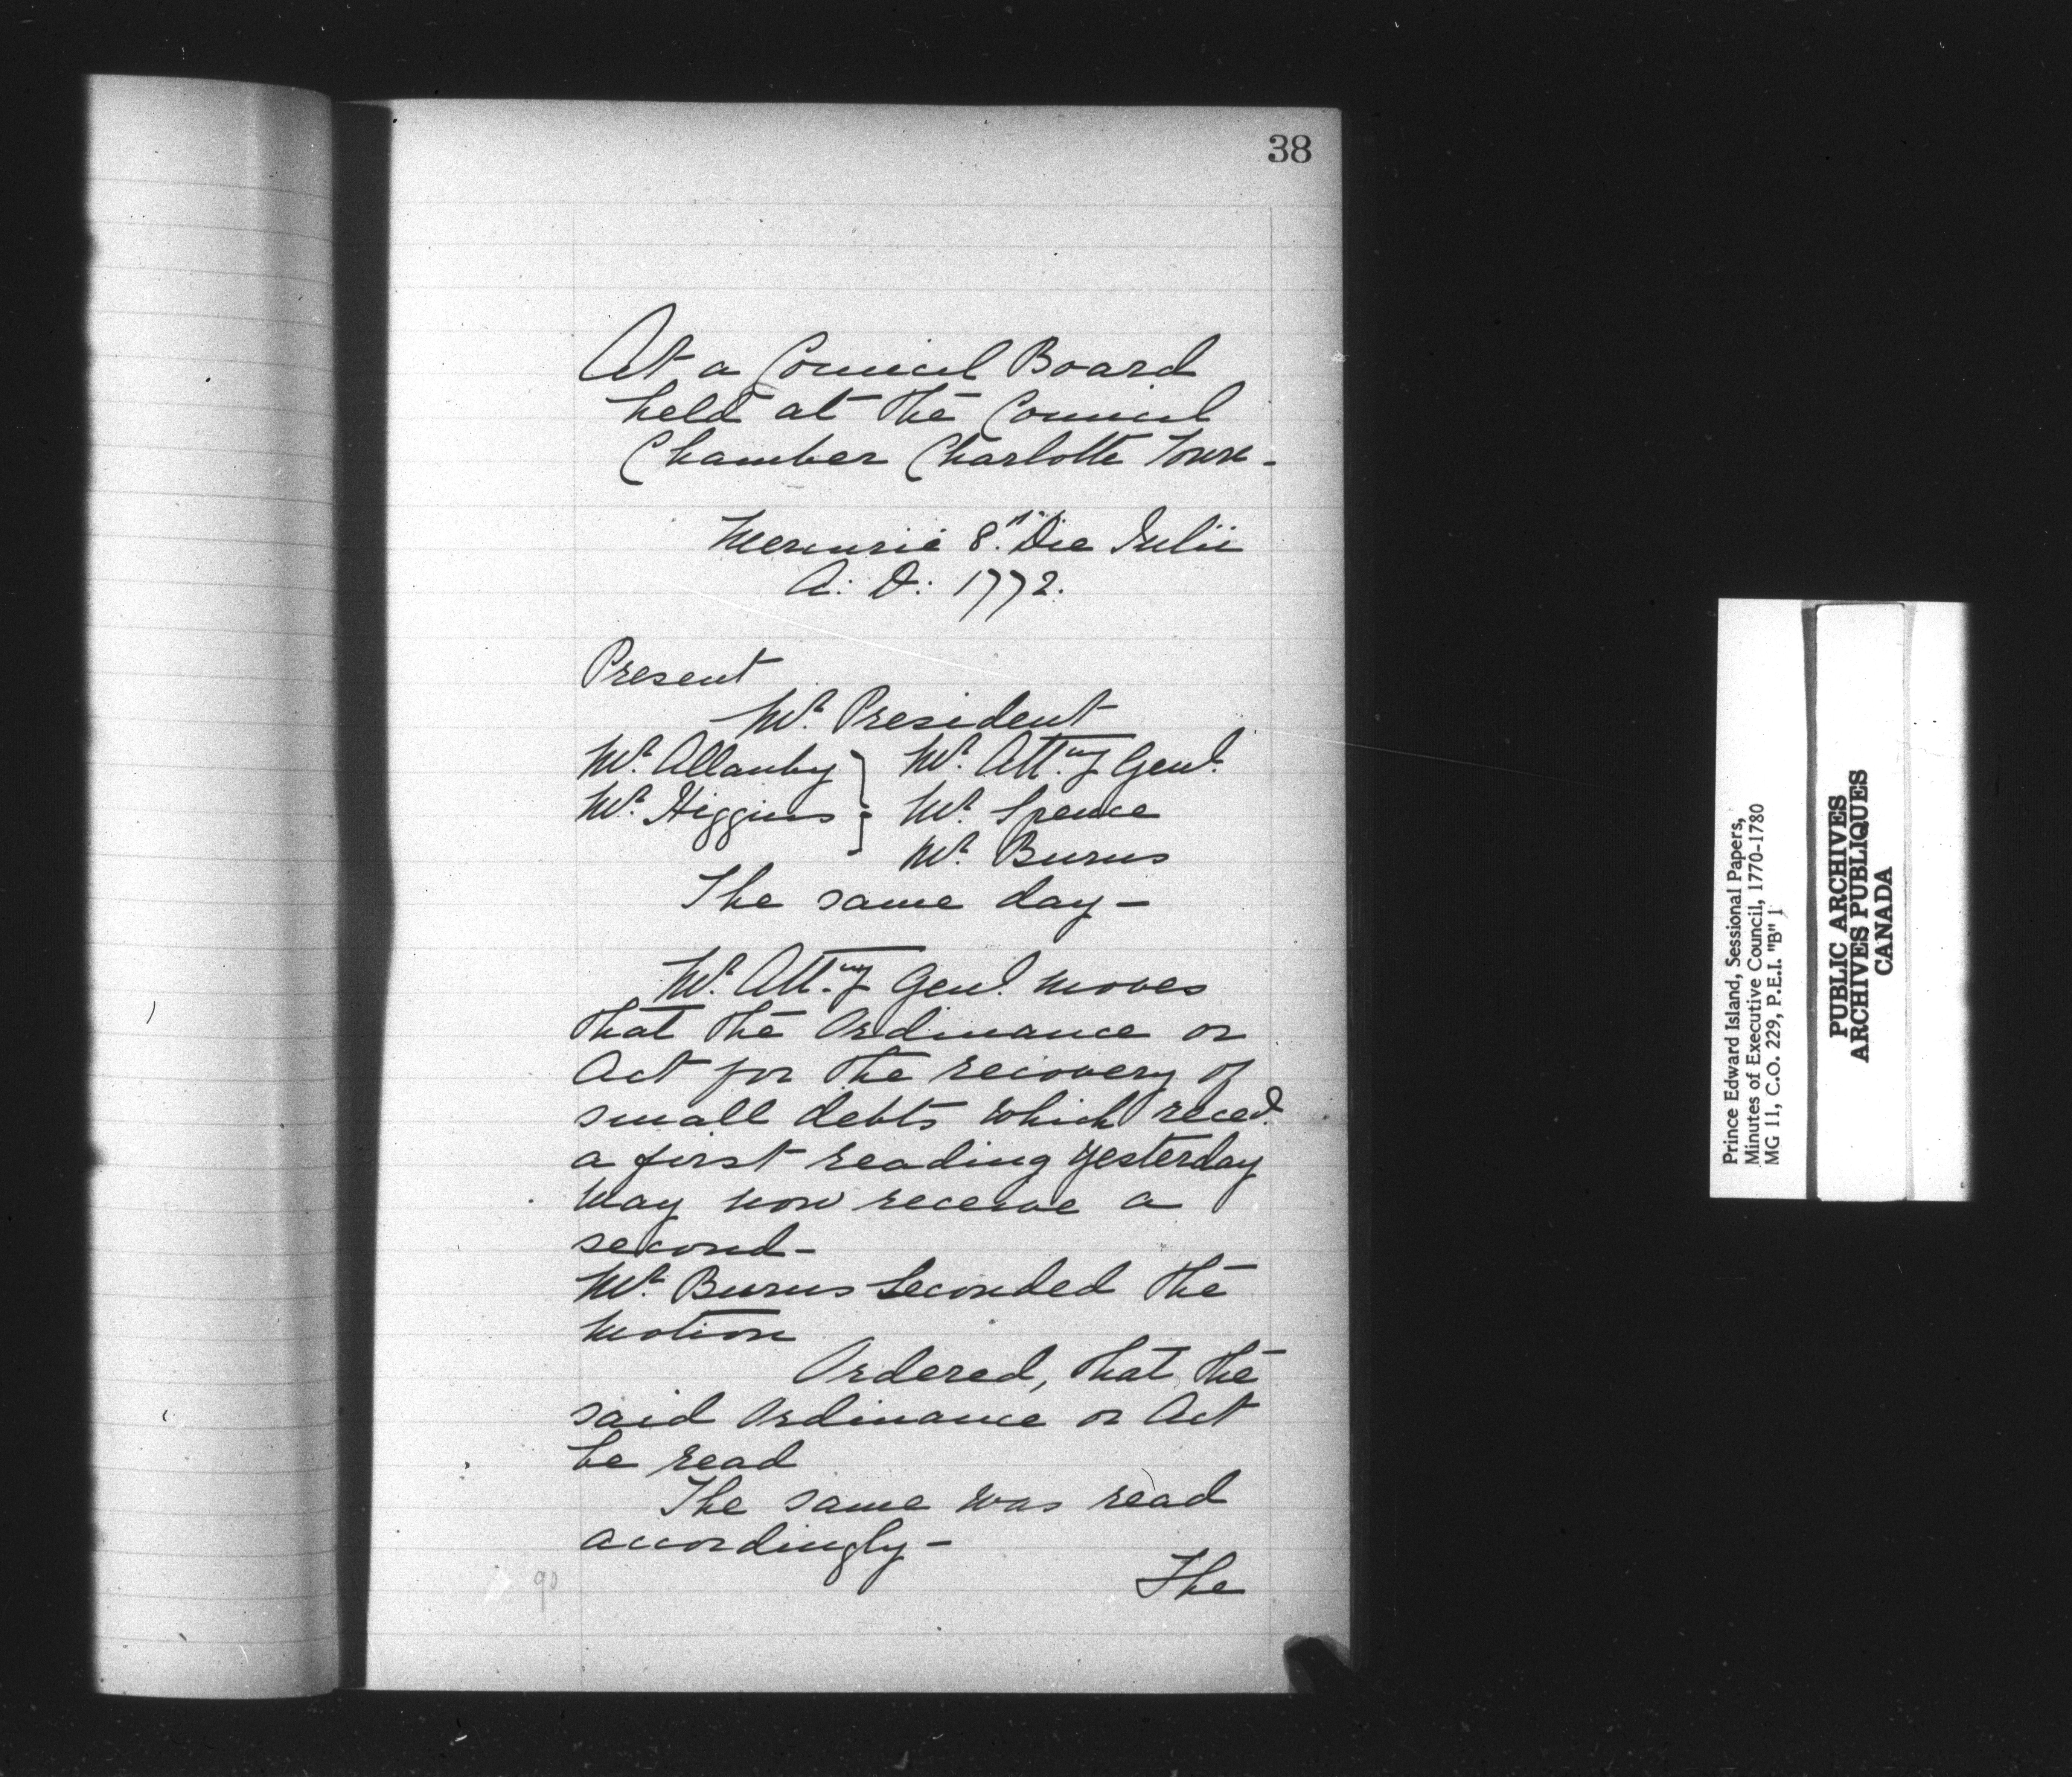 38
At a Council Board
held at the Council
Chamber Charlotte Town-
Mercurie 8. Die Julii
A: D: 1772.
Present
Mr. President
Mr. Allanby } Mr. Atty. Genl.
Mr. Higgins } Mr. Spence
Mr. Burns
The same day-
Mr. Atty. Genl. moves
that the Ordinance or
Act for the recovery of
small debts which recd.
a first reading yesterday
may now receive a
second-
Mr. Burns Seconded the
motion
Ordered, that the
said Ordinance or Act
be read
The same was read
accordingly-
The
90
Prince Edward Island, Sessional Papers,
Minutes of Executive Council, 1770-1780
MG 11, C.O. 229, P.E.I. "B" 1
PUBLIC ARCHIVES
ARCHIVES PUBLIQUES
CANADA